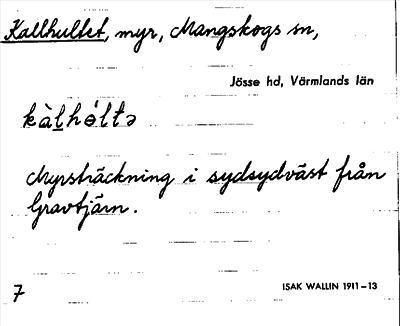 Kallhultet, myr, Mangskogs sn,
Jösse hd, Värmlands län
kàl̲hó̵ltə
Myrsträckning i sydsydväst från
Gravtjärn.
7
ISAK WALLIN 1911–13